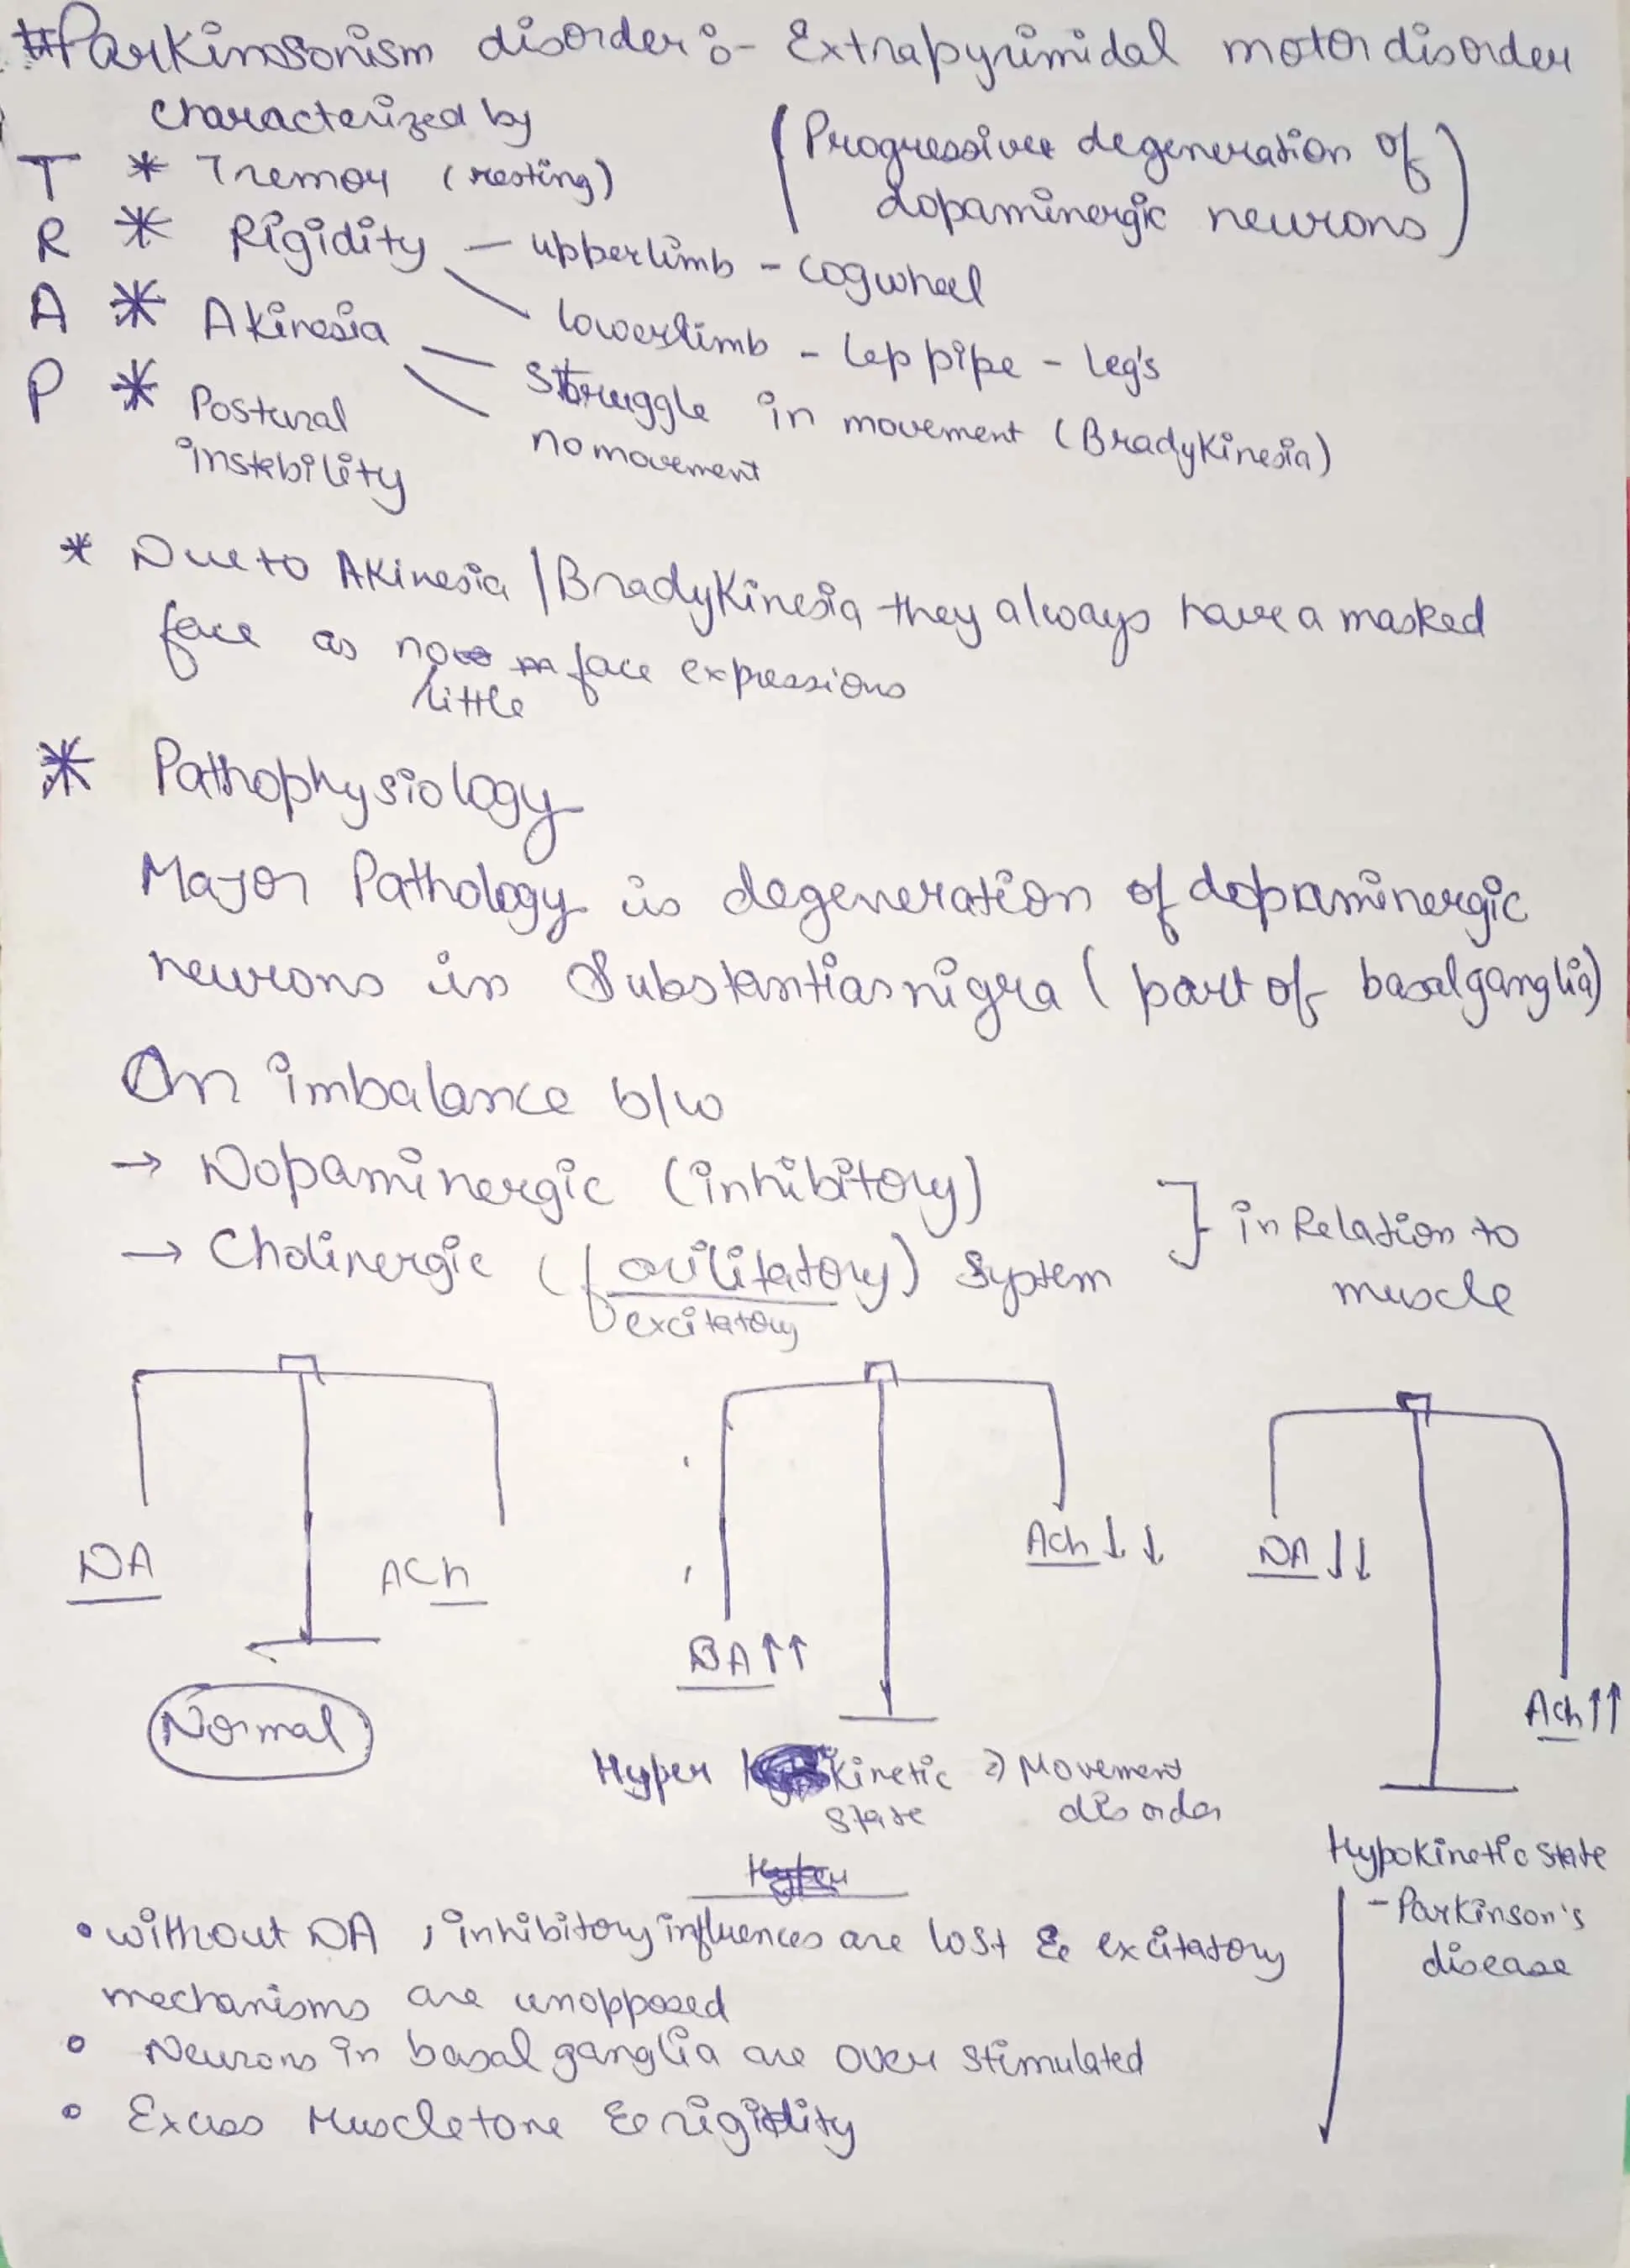 #Parkinsonism disorder :- Extrapyrimidal motor disorder
characterized by
(Progressive degeneration of
dopaminergic neurons)
T * Tremor (resting)
R * Rigidity - upperlimb - cogwheel
lowerlimb - lep pipe - leg's
A * Akinesia - struggle in movement (Bradykinesia)
no movement
P * Postural
instebility
* Due to Akinesia / Bradykinesia they always have a masked
face as no face expressions
little
* Pathophysiology
Major Pathology is degeneration of dopaminergic
neurons in Substantiasnigra (part of basal ganglia)
On imbalance b/w
→ Dopaminergic (inhibitory)
→ Cholinergic (facilitatory) system
excitatory
] in Relation to
muscle
DA ACh
Normal
DA↑↑ Ach↓↓
Hyper kinetic => Movement
state disorder
DA↓↓ Ach↑↑
Hypokinetic state
- Parkinson's
disease
• without DA, inhibitory influences are lost & excitatory
mechanisms are unopposed
• Neurons in basal ganglia are over stimulated
• Excess Muscle tone & rigidity